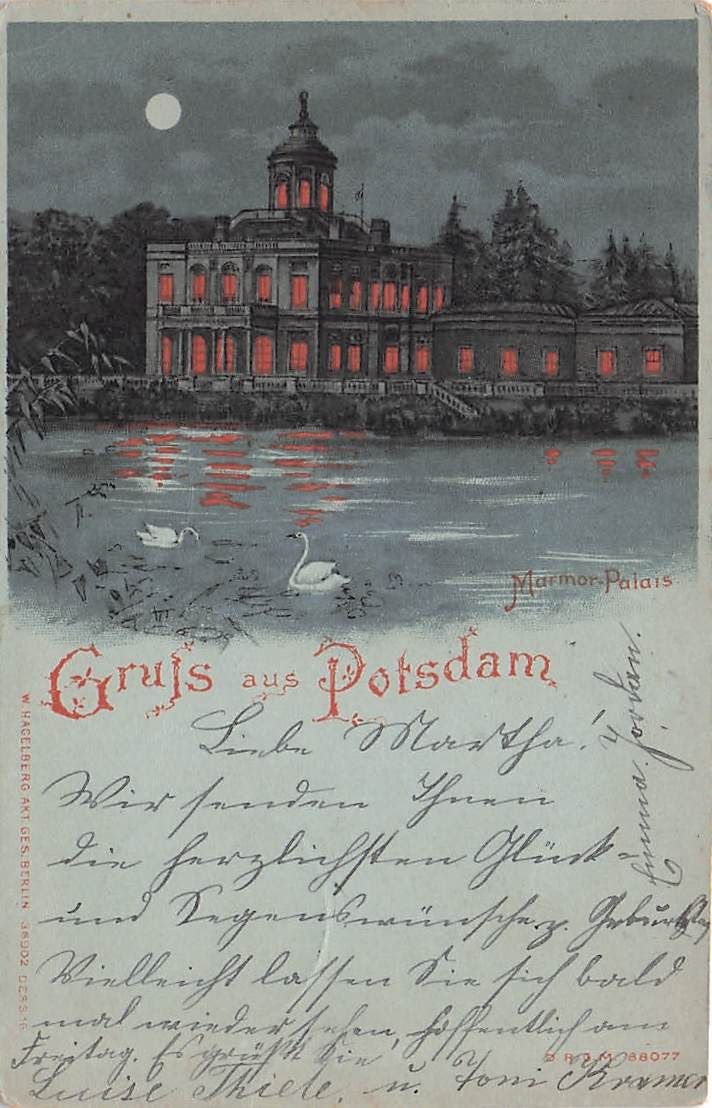 Marmor-Palais
Gruſs aus Potsdam
Liebe Martha!
Wir senden Ihnen
die herzlichsten Glück-
und Segenswünsche z. Geburtstag
Vielleicht lassen Sie sich bald
mal wieder sehen, hoffentlich am
Freitag. Es grüßt Sie
Luise Thiele. u. Toni Kramer
Emma Jordan.
W. HAGELBERG AKT. GES. BERLIN
D.R.G.M. 88077